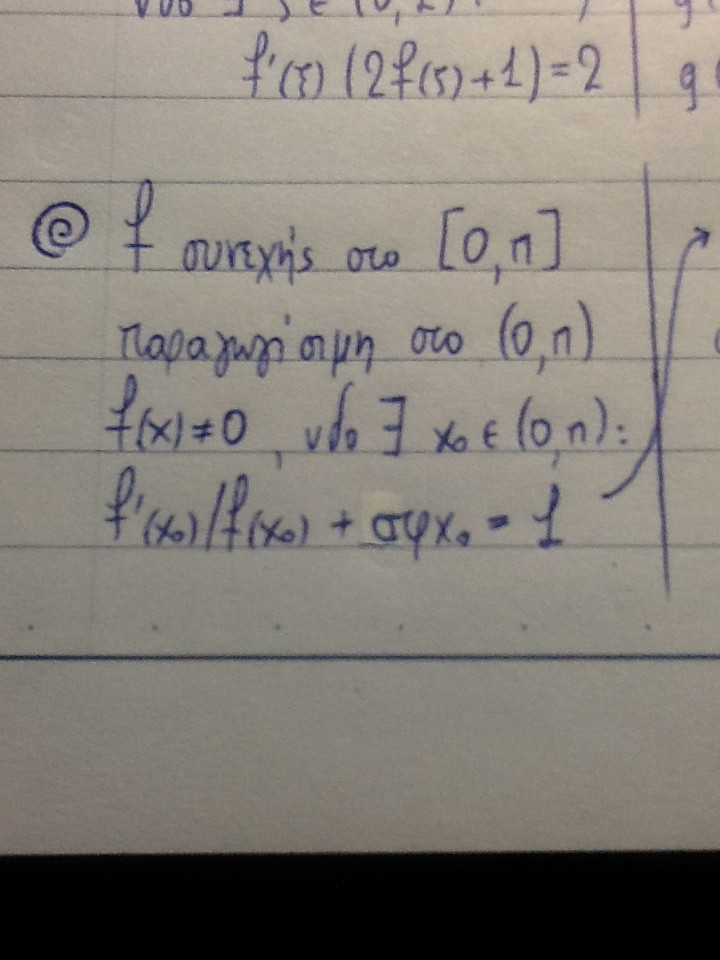 f'(ξ) (2f(ξ)+1)=2
f συνεχής στο [0,π]
παραγωγίσιμη στο (0,π)
f(x)≠0, νδο ∃ x₀ ∈ (0,π):
f'(x₀)/f(x₀) + σφx₀ = 1